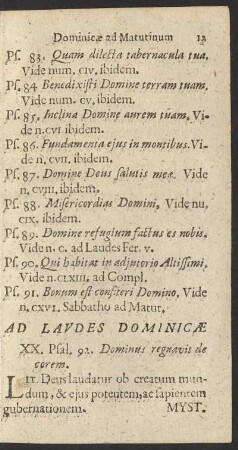 Dominicæ ad Matutinum 12
Ps. 83. Quam dilecta tabernacula tua.
Vide num. CIV, ibidem.
Ps. 84 Benedixisti Domine terram tuam.
Vide num. CV, ibidem.
Ps. 85, Inclina Domine aurem tuam, Vi-
de n. CVI ibidem.
Ps. 86. Fundamenta ejus in montibus. Vi-
de n, CVII. ibidem.
Ps. 87. Domine Deus salutis meæ. Vide
n, CVIII, ibidem.
Ps. 88. Misericordias Domini, Vide nu,
CIX. ibidem.
Ps. 89. Domine refugium factus es nobis,
Vide n. C. ad Laudes Fer. v.
Ps. 90. Qui habitat in adjutorio Altissimi,
Vide n. CLXIII. ad Compl.
Ps. 91. Bonum est confiteri Domino, Vide
n, CXVI. Sabbatho ad Matut.
AD LAVDES DOMINICÆ
XX. Psal. 92. Dominus regnavit de
corem.
LIT. Deus laudatur ob creatum mun-
dum, & ejus potentem, ac sapientem
gubernationem. MYST.